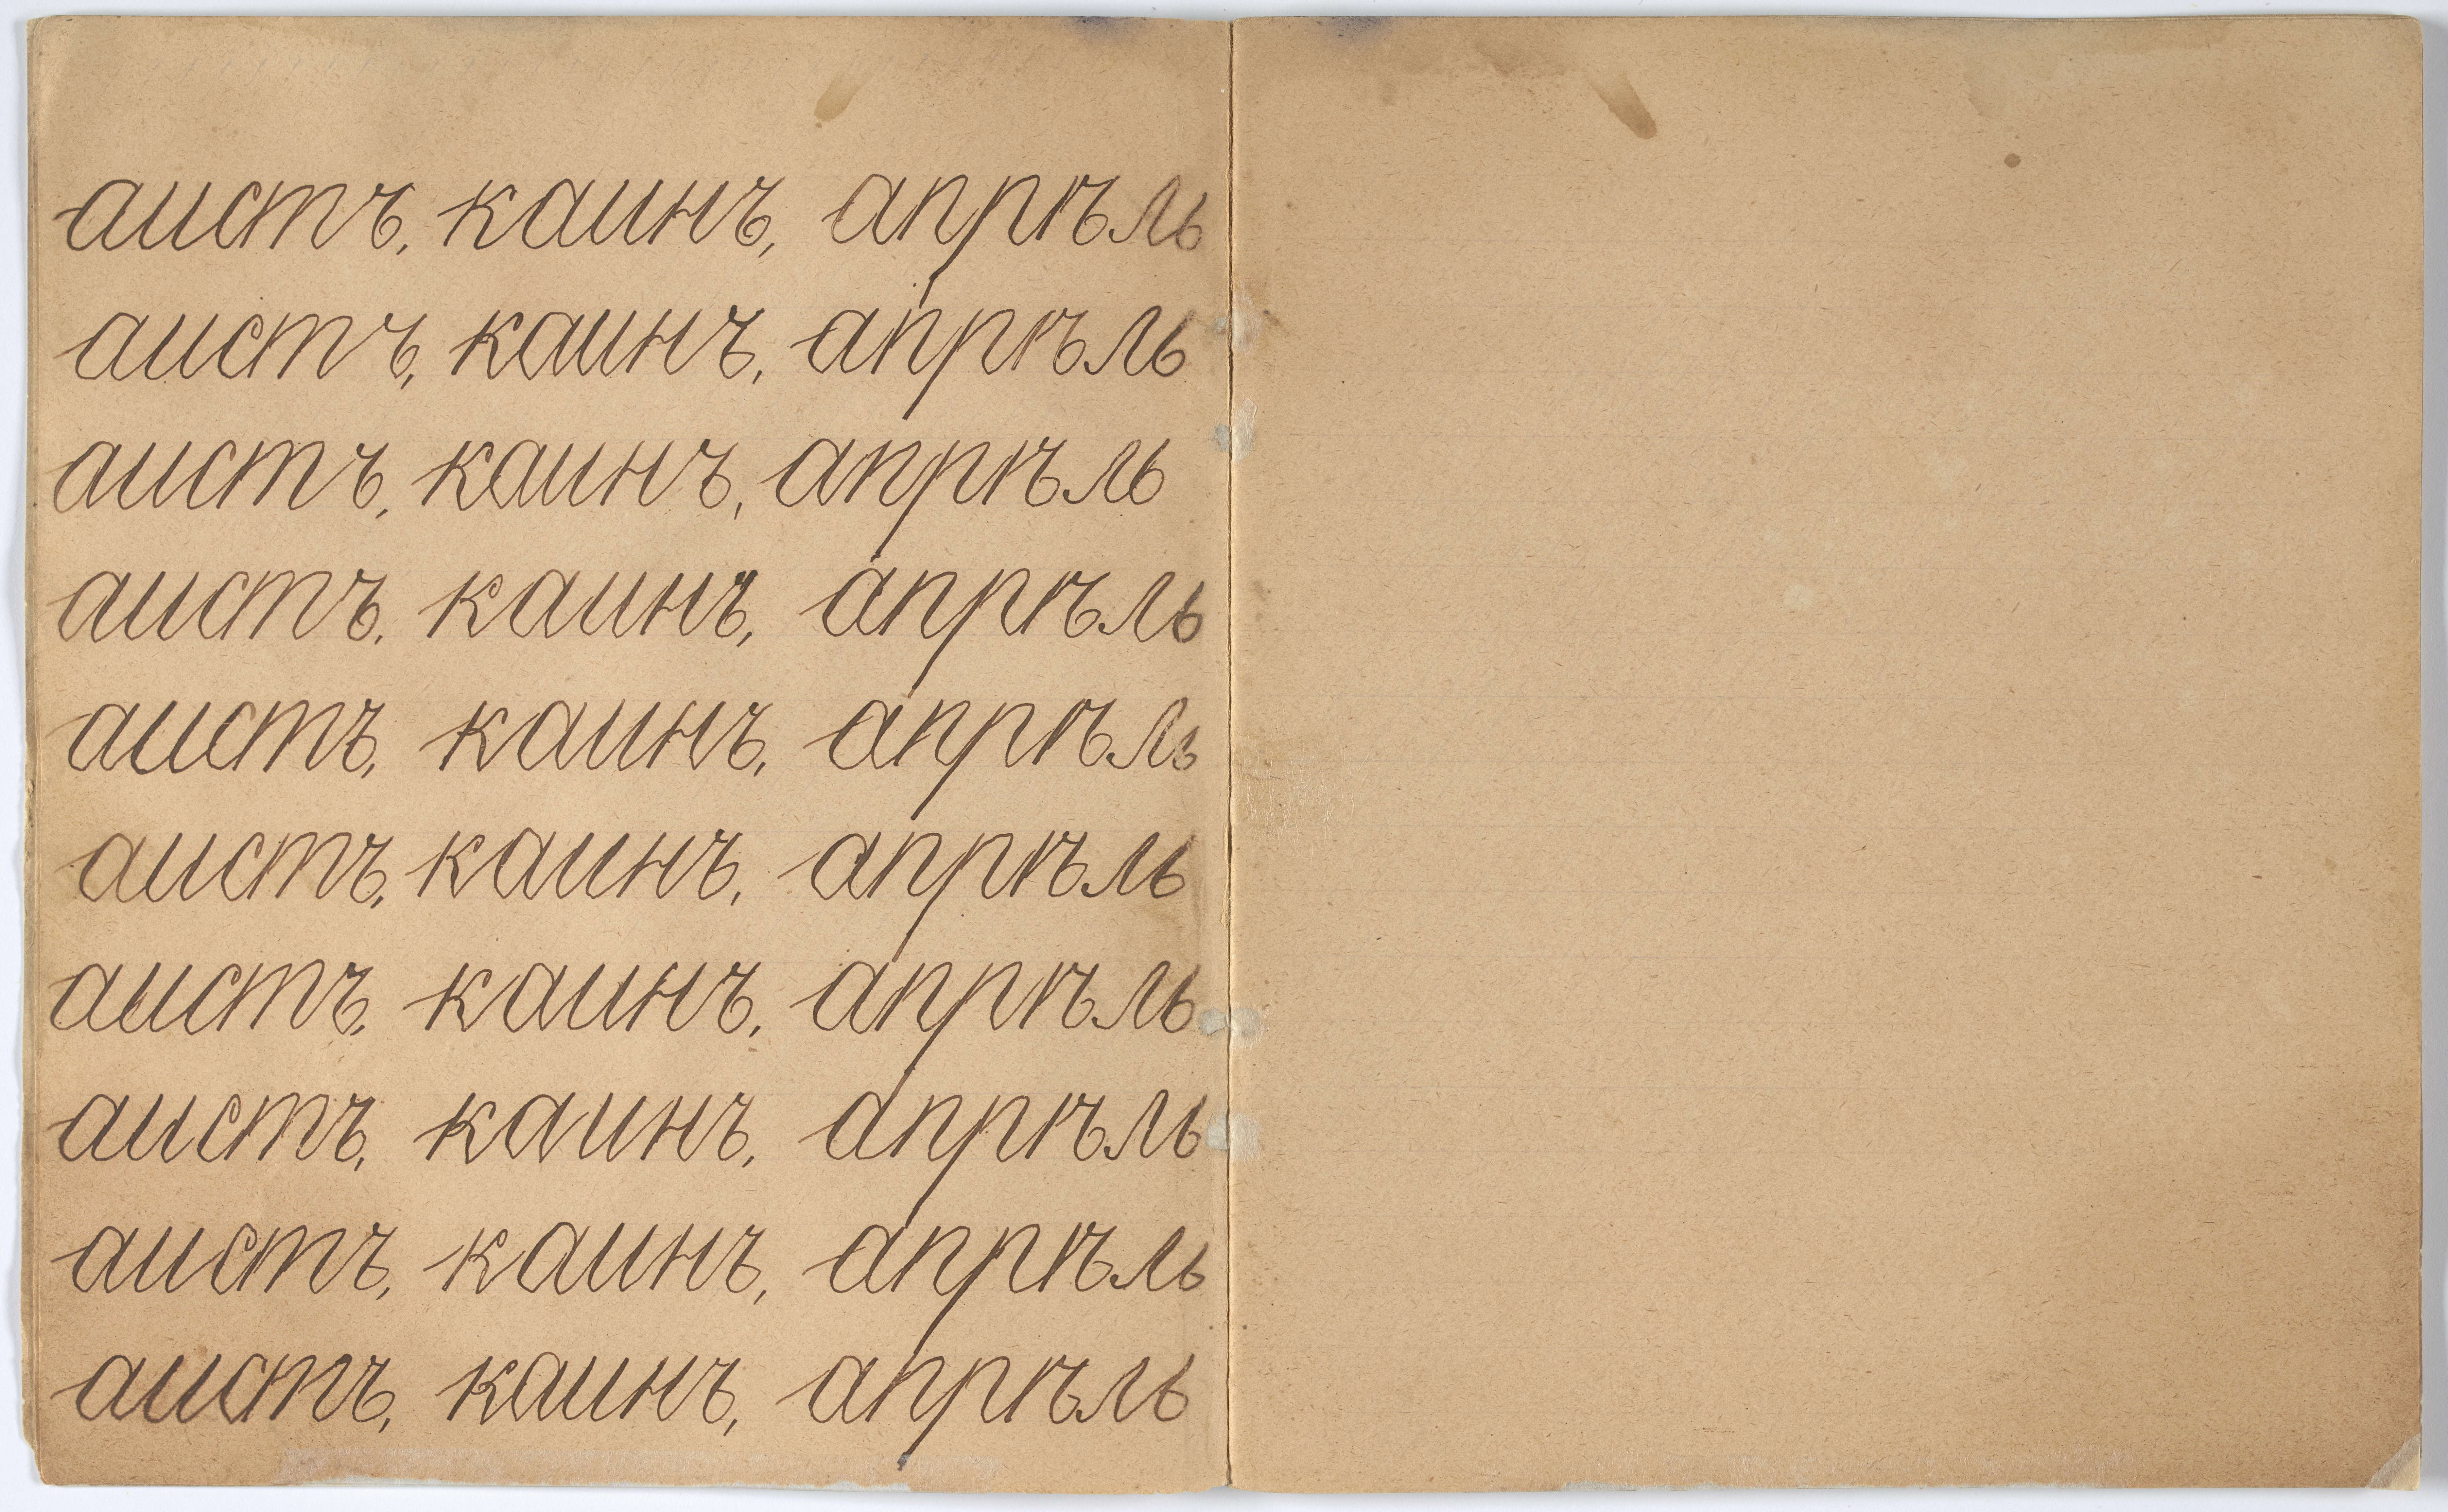 аистъ, каинъ, апрѣль
аистъ, каинъ, апрѣль
аистъ, каинъ, апрѣль
аистъ, каинъ, апрѣль
аистъ, каинъ, апрѣль
аистъ, каинъ, апрѣль
аистъ, каинъ, апрѣль
аистъ, каинъ, апрѣль
аистъ, каинъ, апрѣль
аистъ, каинъ, апрѣль